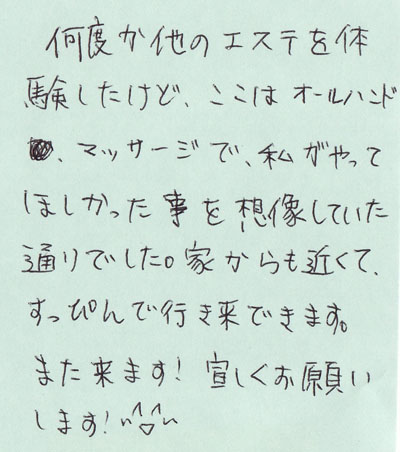 何度か他のエステを体
験したけど、ここはオールハンド
、マッサージで、私がやって
ほしかった事を想像していた
通りでした。家からも近くて、
すっぴんで行き来できます。
また来ます！宜しくお願い
します！^▽^